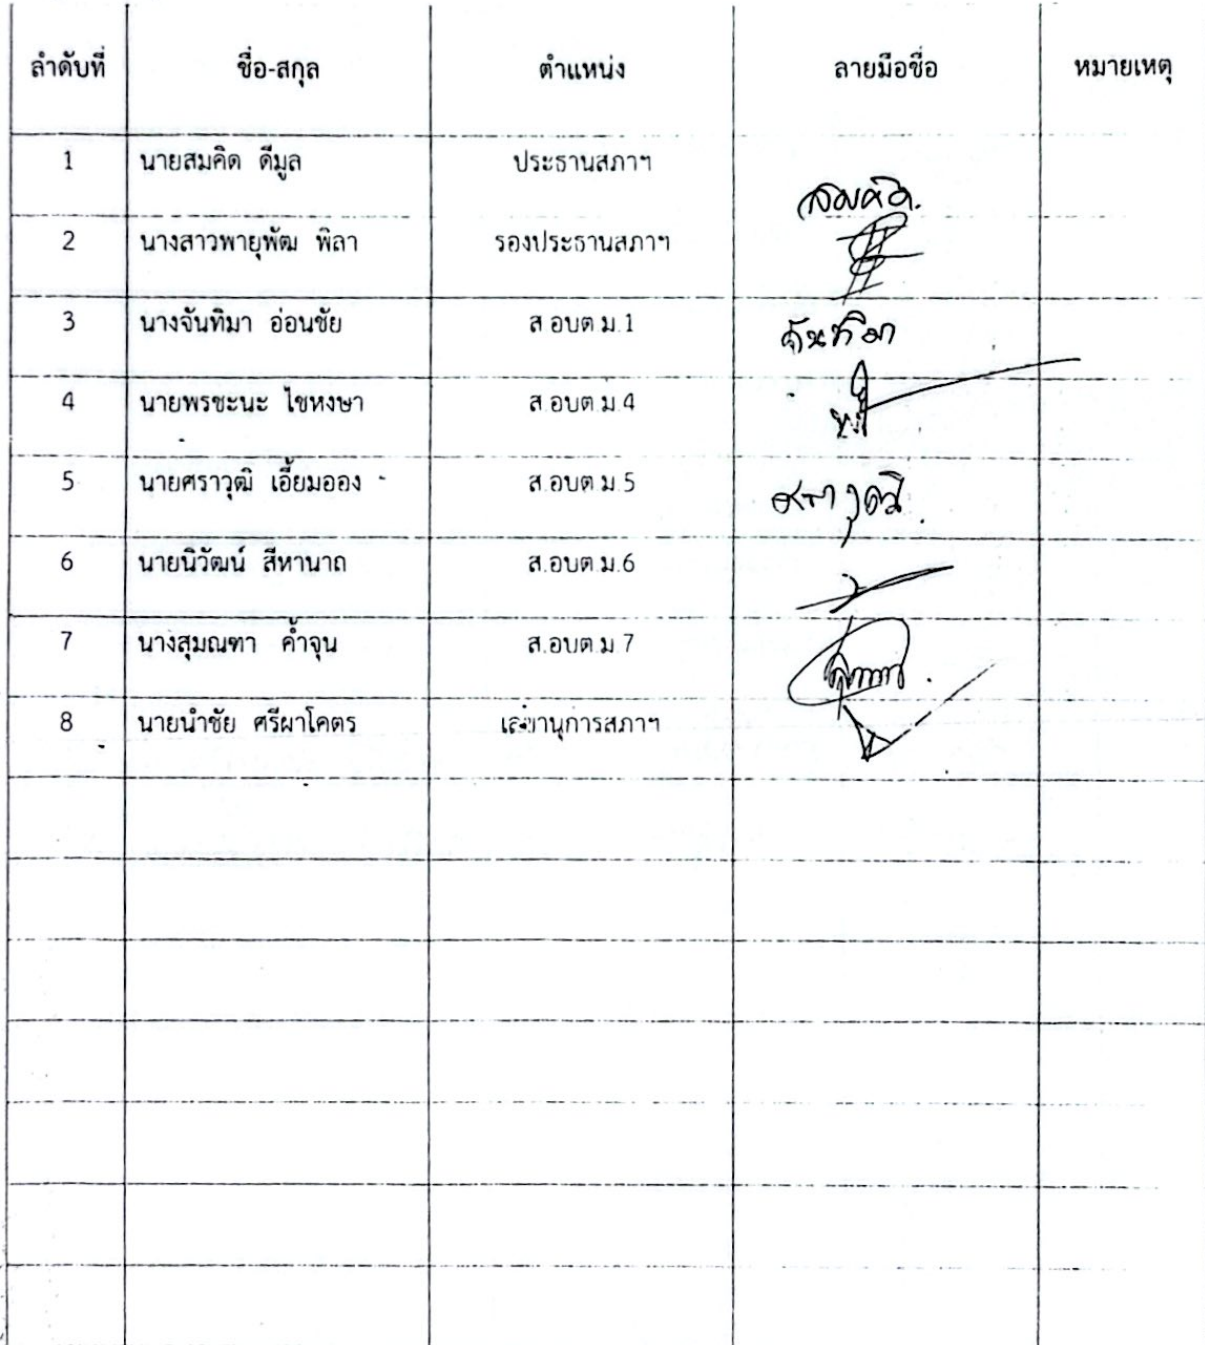 ลำดับที่ ชื่อ-สกุล ตำแหน่ง ลายมือชื่อ หมายเหตุ
1 นายสมคิด ดีมูล ประธานสภาฯ สมคิด
2 นางสาวพายุพัฒ พิลา รองประธานสภาฯ
3 นางจันทิมา อ่อนชัย ส.อบต.ม.1 จันทิมา
4 นายพรชะนะ ไขหงษา ส.อบต.ม.4
5 นายศราวุฒิ เอี้ยมออง ส.อบต.ม.5
6 นายนิวัฒน์ สีหานาถ ส.อบต.ม.6
7 นางสุมณฑา ค้ำจุน ส.อบต.ม.7
8 นายนำชัย ศรีผาโคตร เลขานุการสภาฯ